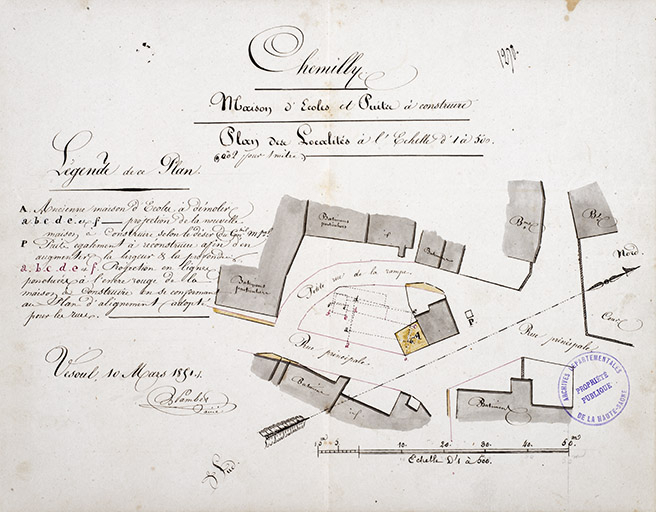 Chemilly
1870.
Maison d'Ecoles et Puits à construire
Plan des Localités à l'Echelle d'1 à 500.
Légende de ce Plan.
A. Ancienne maison d'Ecoles, à démolir
a. b. c. d. e. f projection de la nouvelle
maison, à Construire selon le désir du
P Puits également à reconstruire afin d'en
augmenter la largeur & la profondeur
a. b. c. d. e. f. Projection en lignes
ponctuées à l'encre rouge de la
maison à Construire en se conformant
au Plan d'alignement adopté
pour les rues.
Vesoul, 10 Mars 1854.
Batiment particulier
Batiment
Batiment particulier
Nord.
Petite rue de la rampe
Cour
A
P
Rue principale
Rue principale
Batiment
Batiment
Sud
10.
20.
30.
40.
50.
Echelle D'1 à 500.
ARCHIVES DEPARTEMENTALES
PROPRIETE
PUBLIQUE
DE LA HAUTE-SAONE